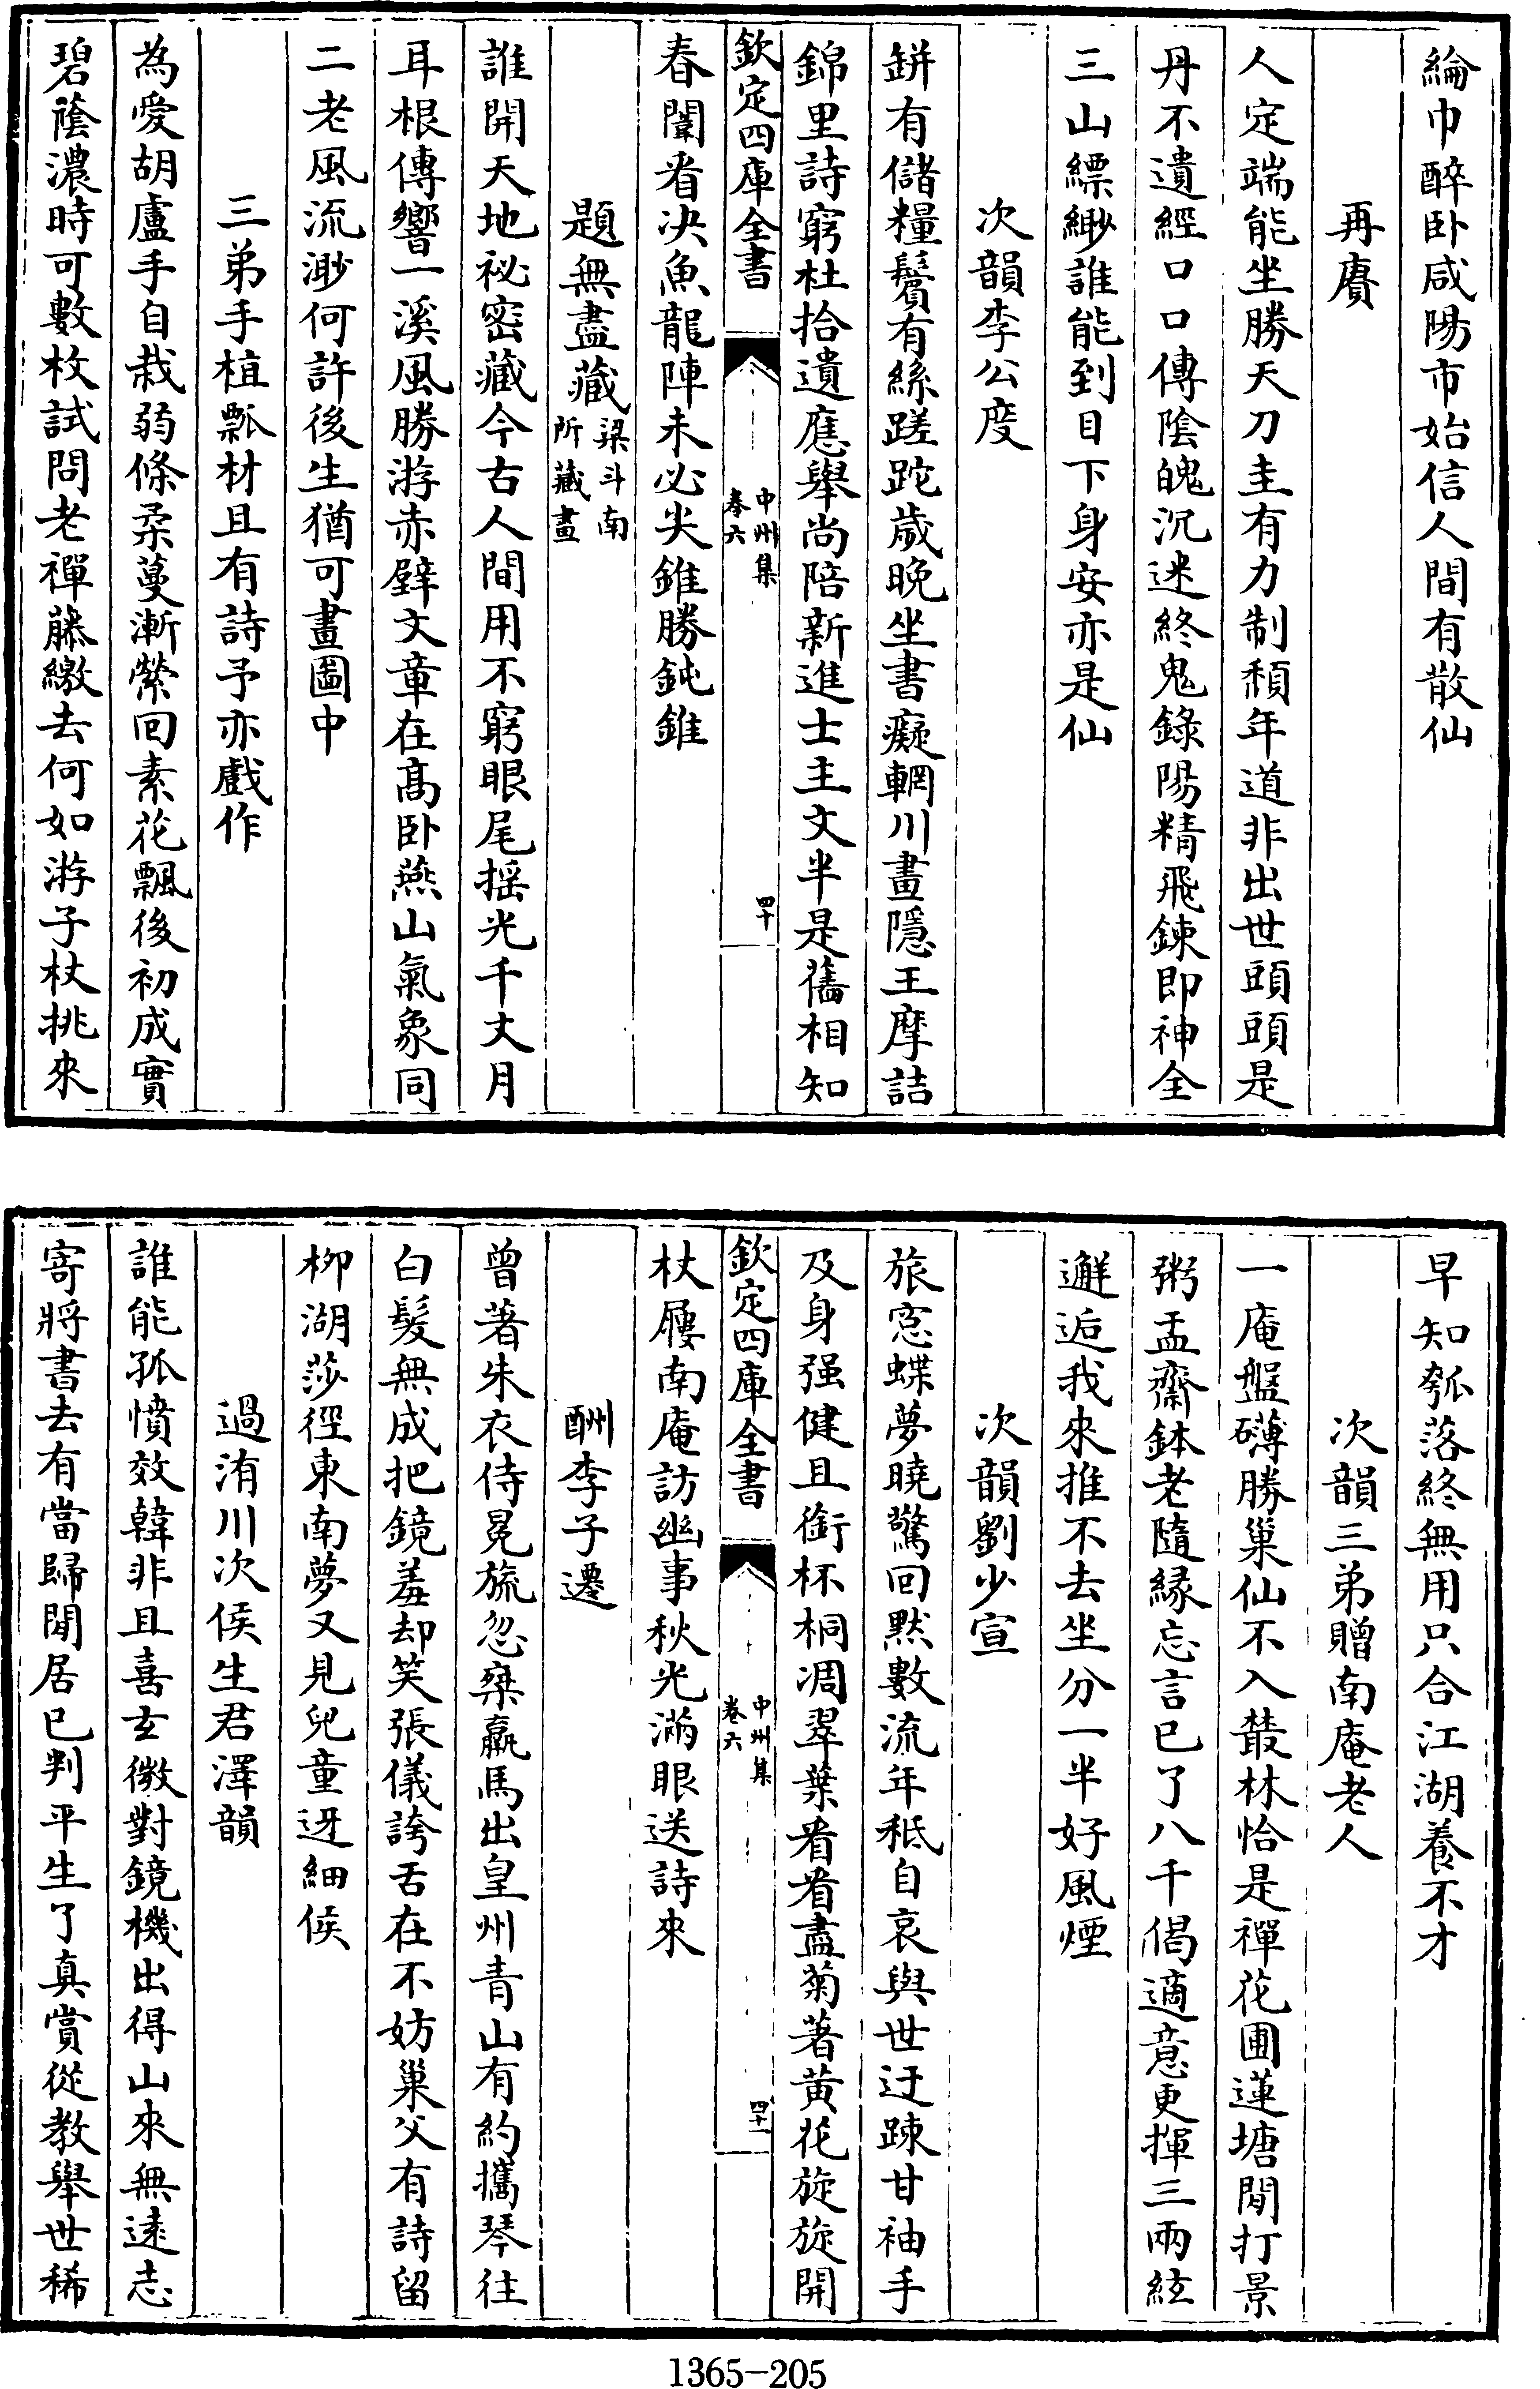 綸巾醉卧咸陽市始信人間有散仙
再賡
人定端能坐勝天刀圭有力制頹年道非出世頭頭是
丹不遺經口口傳陰魄沉迷終鬼錄陽精飛鍊即神全
三山縹緲誰能到目下身安亦是仙
次韻李公度
缾有儲糧鬢有絲蹉跎歲晚坐書癡輞川畫隱王摩詰
錦里詩窮杜拾遺應舉尚陪新進士主文半是舊相知
欽定四庫全書
中州集
卷六
四十
春闈看決魚龍陣未必尖錐勝鈍錐
題無盡藏
梁斗南
所藏畫
誰開天地祕密藏今古人間用不窮眼尾摇光千丈月
耳根傳響一溪風勝游赤壁文章在髙卧燕山氣象同
二老風流渺何許後生猶可畫圖中
三弟手植瓢材且有詩予亦戲作
為愛胡盧手自栽弱條柔蔓漸縈回素花飄後初成實
碧蔭濃時可數枚試問老禪藤繳去何如游子杖挑來
早知瓠落終無用只合江湖養不才
次韻三弟贈南庵老人
一庵盤礴勝巢仙不入叢林恰是禪花圃蓮塘閒打景
粥盂齋鉢老隨緣忘言已了八千偈適意更揮三兩絃
邂逅我來推不去坐分一半好風煙
次韻劉少宣
旅窓蝶夢曉驚回默數流年秪自哀與世迂踈甘袖手
及身强健且銜杯桐凋翠葉看看盡菊著黄花旋旋開
欽定四庫全書
中州集
卷六
四十一
杖屨南庵訪幽事秋光滿眼送詩來
酬李子遷
曾著朱衣侍冕旒忽乗羸馬出皇州青山有約攜琴往
白髮無成把鏡羞却笑張儀誇舌在不妨巢父有詩留
柳湖莎徑東南夢又見兒童迓細侯
過洧川次侯生君澤韻
誰能孤憤效韓非且喜玄微對鏡機出得山來無遠志
寄將書去有當歸閒居已判平生了真賞從教舉世稀
1365-205